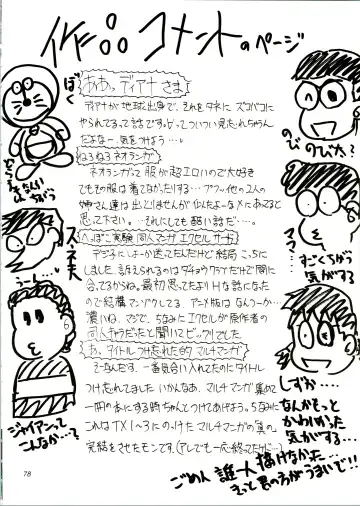 作品コメントのページ
あわわっ ディアナさま
ディアナが地球出身で、それをタネにズコバコに
やられてるって話です。ビっついつい見忘れちゃうん
だよなー 気をつけよう …。
ねろねろネオランガ
ネオランガって服が超エロいので大好き
でもその服は着てなかったりする… アフ〜他の2人の
姉さん達は出てきませんが似たよーなメにあってると
思って下さい。…それにしても酷い話だ…。
へっぽこ実験同人マンガ エクセルサーガ
デジタにしよーか迷ってたんだけど結局こっちに
しました。
の で結構マンゾクしてる アニメ版はなんつーか…
濃いね。マジで、ちなみにエクセルが原作者の
同人キャラだったと聞いてビックリでした
あ、タイトルつけ忘れた的マルチマンガ
そーなんだす、一番気合い入れてたのにタイトル
つけ忘れてました いかんなあ、マルチマンガ集めて
一冊の本にする時ちゃんとつけてあげよう。ちなみに
これはTX1〜3にのっけたマルチマンガの「真の」
完結をさせたモンです。(アレでも一応終ってたけど…)
ぼく
どらえもん
なんかちがう
スネ夫
うーん…
ジャイアンって
こんなか…?
のび のび太?
ママ…
すごくちがう
気がする
しずか…
なんかもっと
かわいかった
気がする…
ごめん 誰一人描けなかった…
きっと君の方がうまいで!!
78